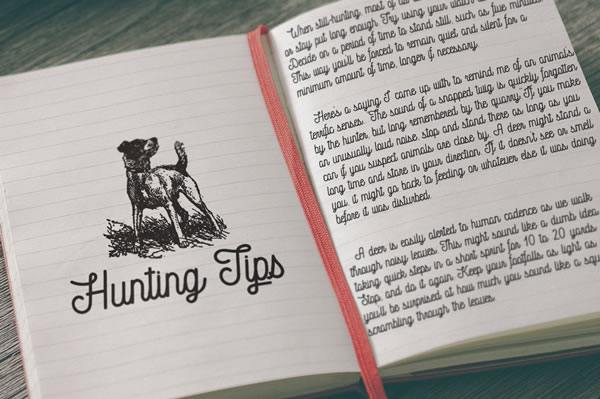 Hunting Tips
When still-hunting, most of us
or stay put long enough. Try using your watch
Decide on a period of time to stand still, such as five minutes
This way you'll be forced to remain quiet and silent for a
minimum amount of time, longer if necessary.
Here's a saying I came up with to remind me of an animals
terrific senses. "The sound of a snapped twig is quickly forgotten
by the hunter, but long remembered by the quarry." If you make
an unusually loud noise, stop and stand there as long as you
can if you suspect animals are close by. A deer might stand a
long time and stare in your direction. If it doesn't see or smell
you, it might go back to feeding or whatever else it was doing
before it was disturbed.
A deer is easily alerted to human cadence as we walk
through noisy leaves. This might sound like a dumb idea
taking quick steps in a short sprint for 10 to 20 yards
Stop, and do it again. Keep your footfalls as light as
you'll be surprised at how much you sound like a squ
scrambling through the leaves.